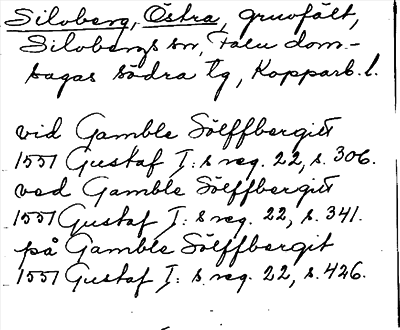 Silvberg, Östra, gruvfält,
Silvbergs sn, Falu dom-
sagas södra tg, Kopparb. l.
vid Gamble Sölffbergitt
1551 Gustaf I:s reg. 22, s. 306.
ved Gamble Sölffbergitt
1551 Gustaf I:s reg. 22, s. 341.
på Gamble Sölffbergit
1551 Gustaf I:s reg. 22, s. 426.